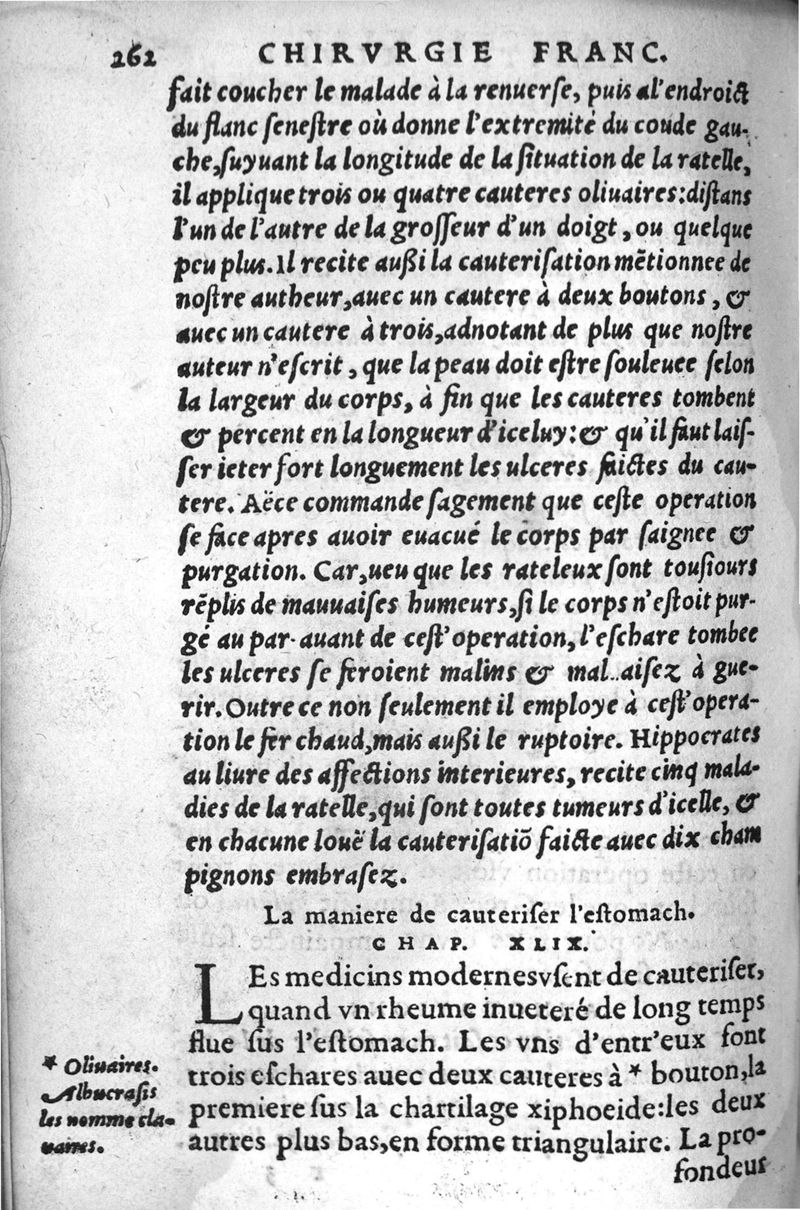 262 CHIRVRGIE FRANC.
fait coucher le malade à la renuerſe, puis a l'endroict
du flanc ſeneſtre où donne l'extremité du coude gau-
che, ſuyuant la longitude de la ſituation de la ratelle,
il applique trois ou quatre cauteres oliuaires: diſtans
l'un de l'autre de la groſſeur d'un doigt, ou quelque
peu plus. Il recite außi la cauteriſation mẽtionnee de
noſtre autheur, auec un cautere à deux boutons, &
auec un cautere à trois, adnotant de plus que noſtre
auteur n'eſcrit, que la peau doit eſtre ſouleuee ſelon
la largeur du corps, à fin que les cauteres tombent
& percent en la longueur d'iceluy: & qu'il faut laiſ-
ſer ieter fort longuement les ulceres faictes du cau-
tere. Aëce commande ſagement que ceſte operation
ſe face apres auoir euacué le corps par ſaignee &
purgation. Car, ueu que les rateleux ſont touſiours
rẽplis de mauuaiſes humeurs, ſi le corps n'eſtoit pur-
gé au par-auant de ceſt' operation, l'eſchare tombee
les ulceres ſe feroient malins & mal aiſez à gue-
rir. Outre ce non ſeulement il employe à ceſt' opera-
tion le fer chaud, mais außi le ruptoire. Hippocrates
au liure des affections interieures, recite cinq mala-
dies de la ratelle, qui ſont toutes tumeurs d'icelle, &
en chacune louë la cauteriſatiõ faicte auec dix cham
pignons embraſez.
La maniere de cauteriſer l'eſtomach.
CHAP. XLIX.
LEs medicins modernes vſent de cauteriſer,
quand vn rheume inueteré de long temps
flue ſus l'eſtomach. Les vns d'entr'eux font
trois eſchares auec deux cauteres à * bouton, la
premiere ſus la chartilage xiphoeide: les deux
autres plus bas, en forme triangulaire. La pro-
fondeur
* Oliuaires.
Albucraſis
les nomme cla-
uaires.